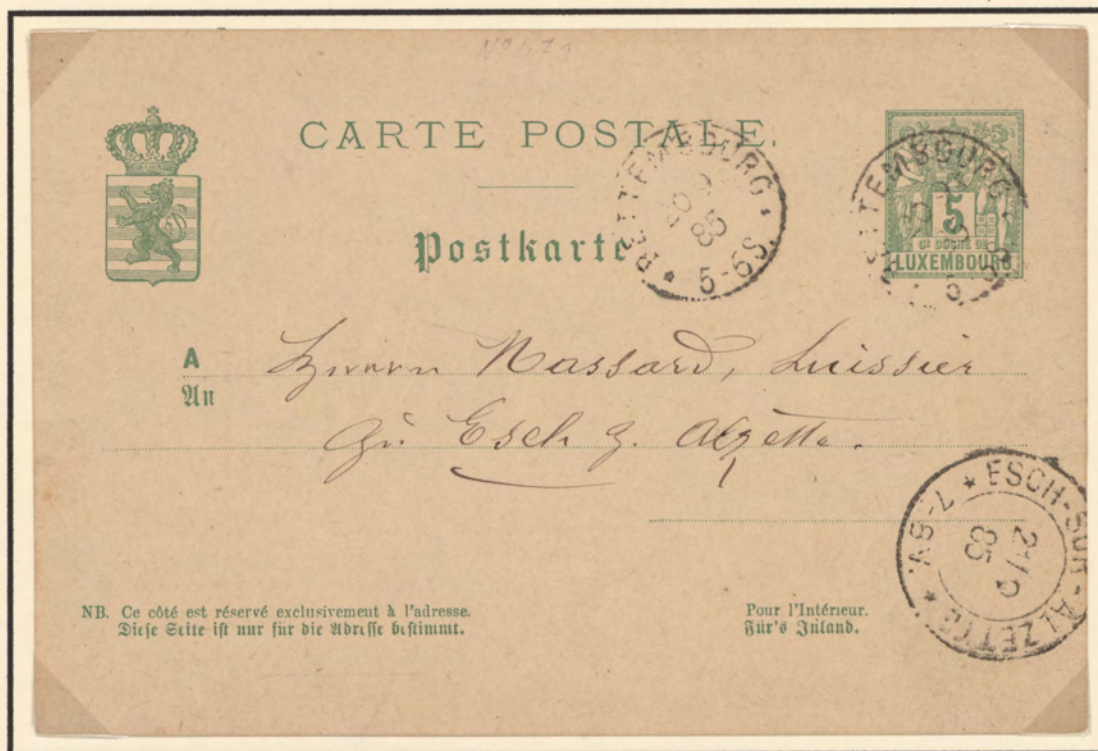 CARTE POSTALE.
Postkarte
BETTEMBOURG
85
5-6S.
BETTEMBOURG
5
GD DUCHÉ DE
LUXEMBOURG
A
An
Herrn Massard, Huissier
zu Esch a. Alzette.
ESCH-SUR-ALZETTE
7-8V.
21/9
85
NB. Ce côté est réservé exclusivement à l'adresse.
Diese Seite ist nur für die Adresse bestimmt.
Pour l'Intérieur.
Für's Inland.